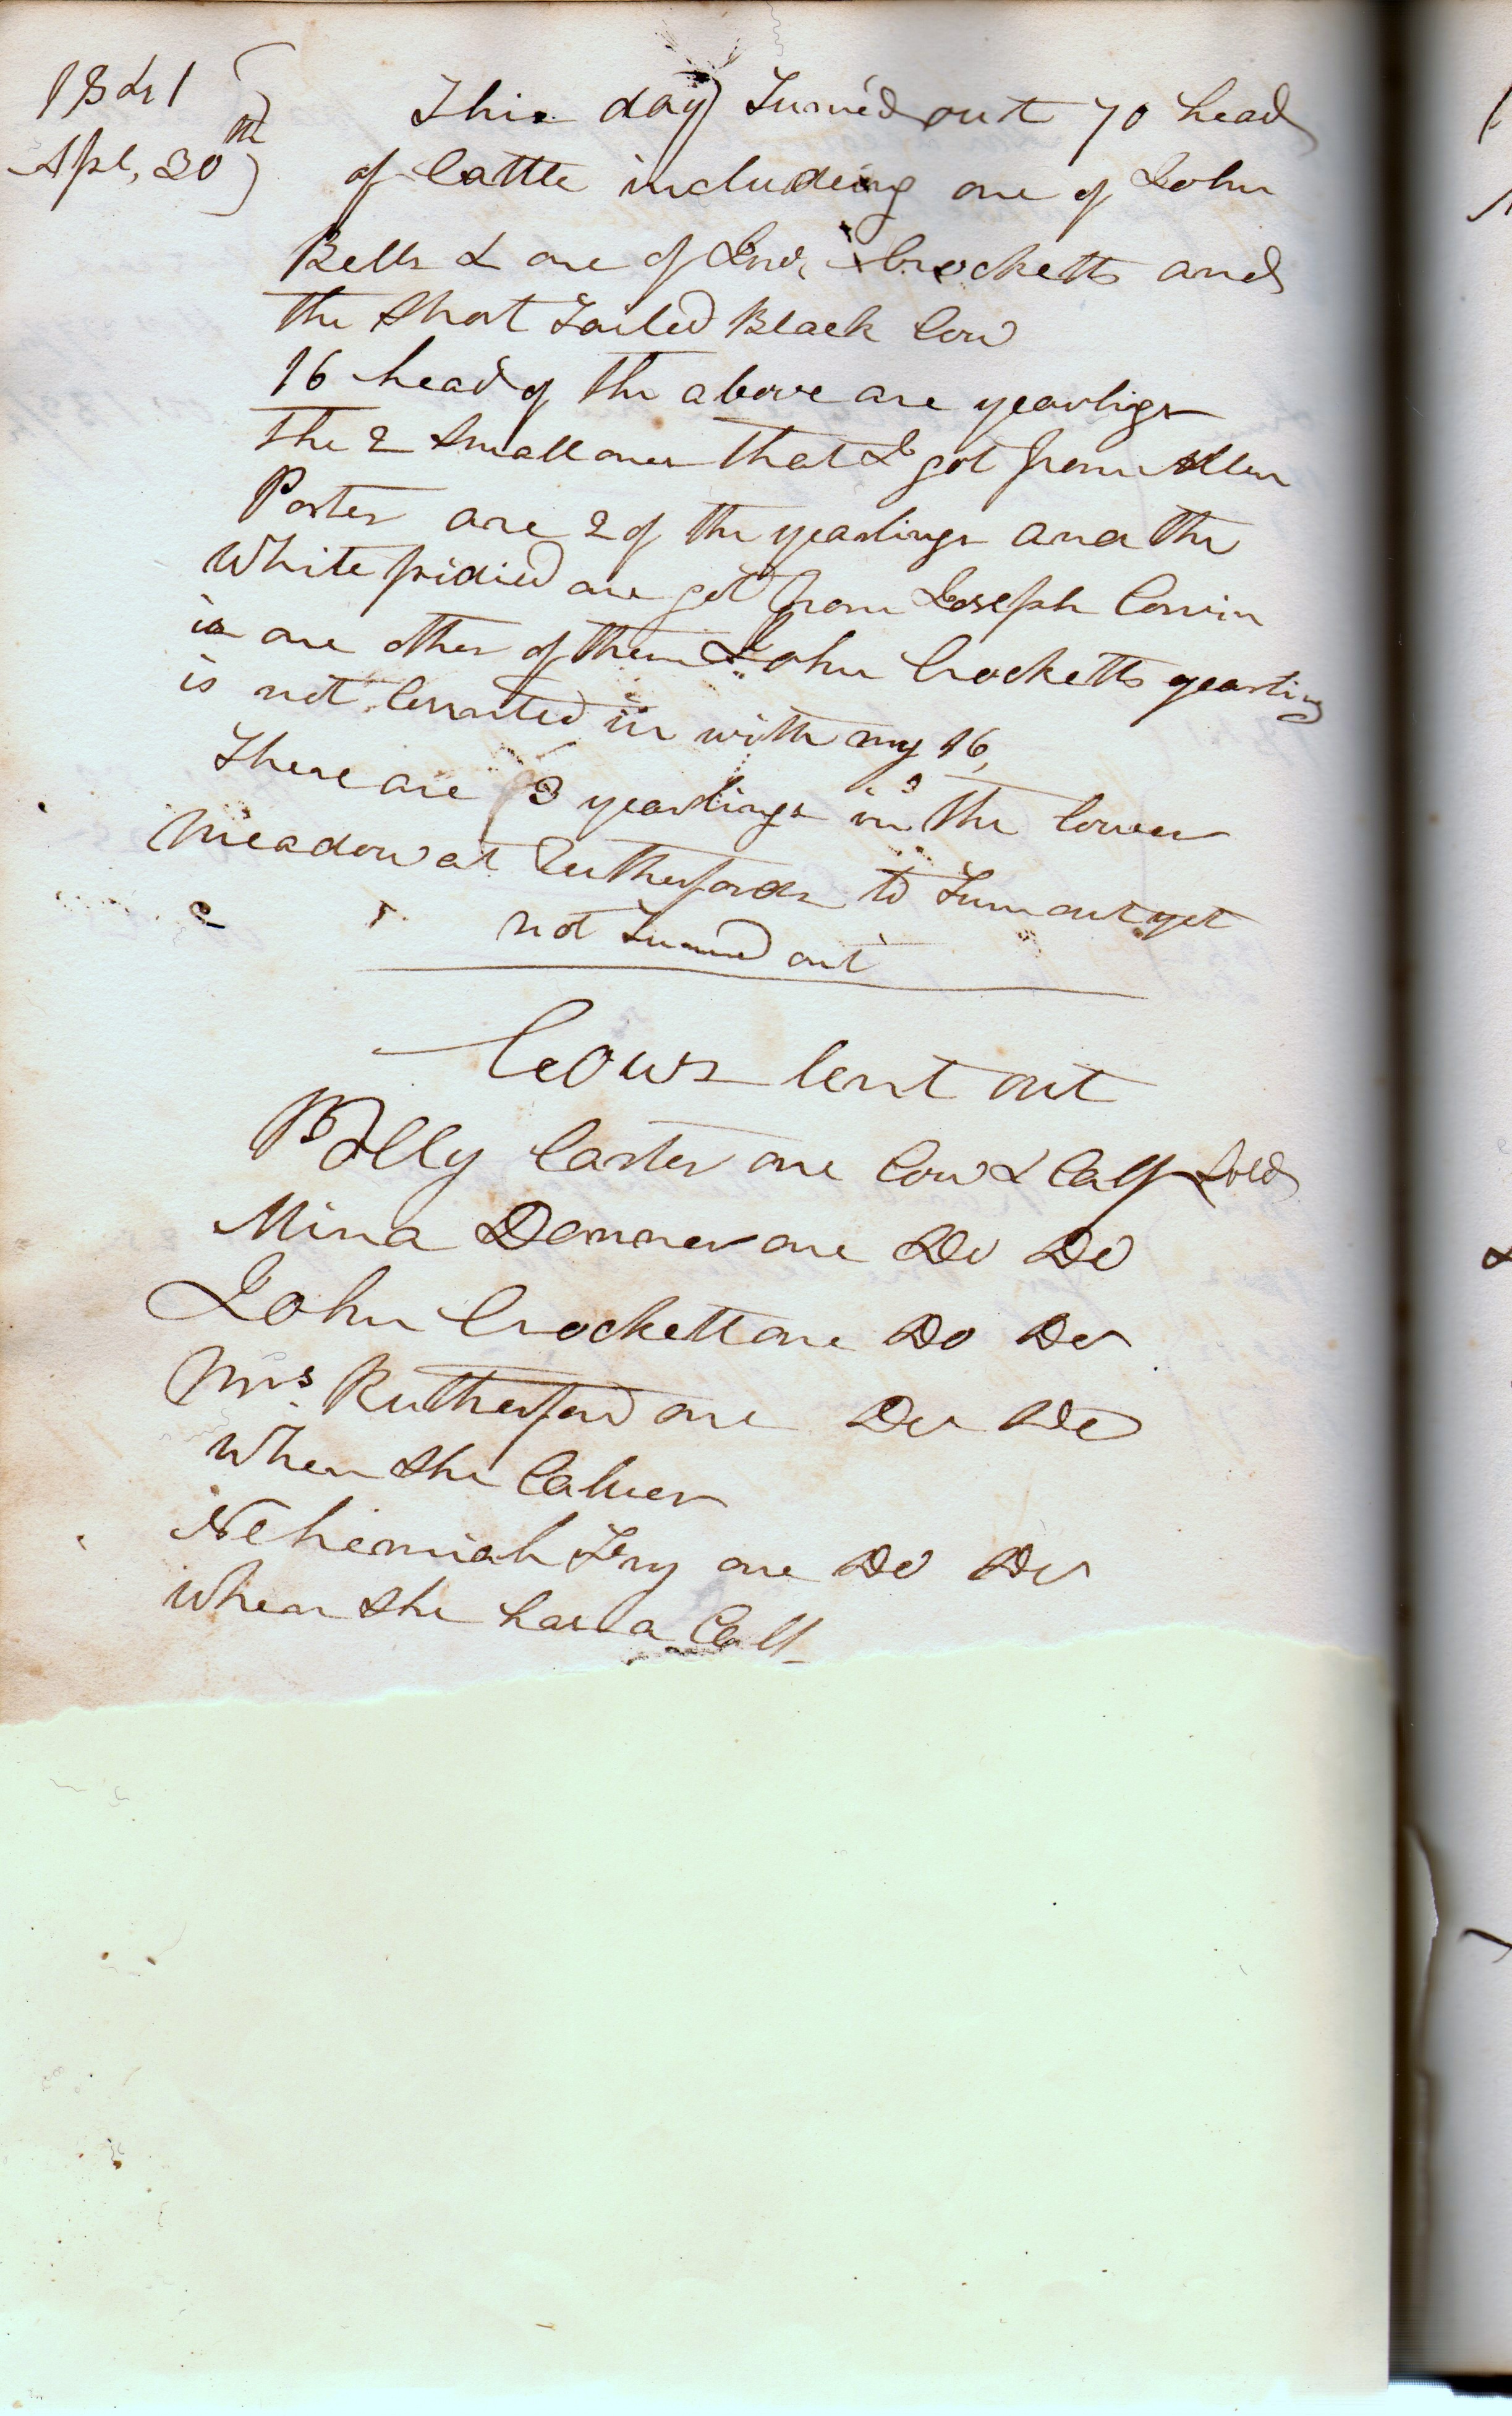 1841
Apl, 30th
This day Turned out 70 head
of Cattle includeing one of John
Bells & one of Jno, Crocketts and
the Short Tailed Black Cow
16 head of the above are yearligs
the 2 Small ones that I got from Allen
Porter are 2 of the yearlings and the
White pidied one got from Joseph
is one other of them John Crocketts yearling
is not Counted in with my 16,
There are 3 yearlings in the lower
Meadow at Rutherfords to Turn out yet
not Turned out
Cows lent out
Polly Carter one Cow & Calf Sold
Mina one Do Do
John Crockett one Do Do
Mrs Rutherford one Do Do
When She Calves
Nehemiah Fry one Do Do
When She has a Calf